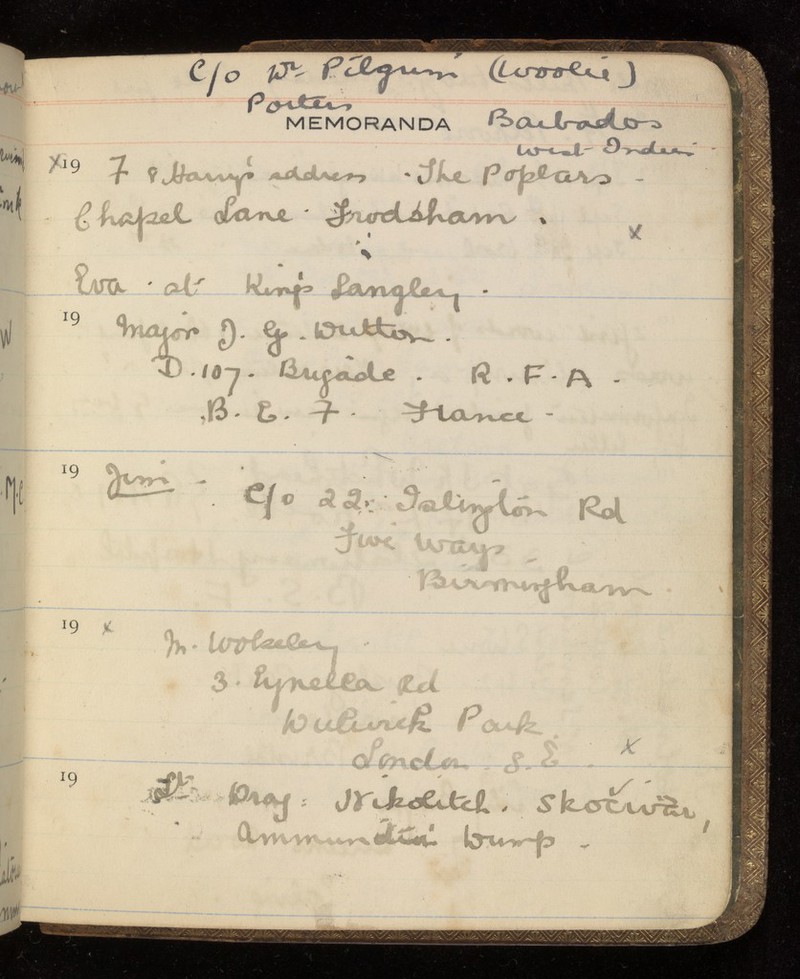 C/o Dr Pilgrim (Woolie)
Porters
MEMORANDA Barbados
West Indies
x 19 F & Harry's address - The Poplars -
Chapel Lane. Frodsham. x
Eva. at King's Langley.
19 Major J. G. Dutton.
D. 107. Brigade. R.F.A.
B. E. F. France -
19 Jim -
C/o 22. Islington Rd
Five Ways -
Birmingham.
19 x M.
3. Eynella Rd
Dulwich Park.
London. S.E. x
19 Lt Drag: Nikolitch. Skočivir,
Ammunition Dump -